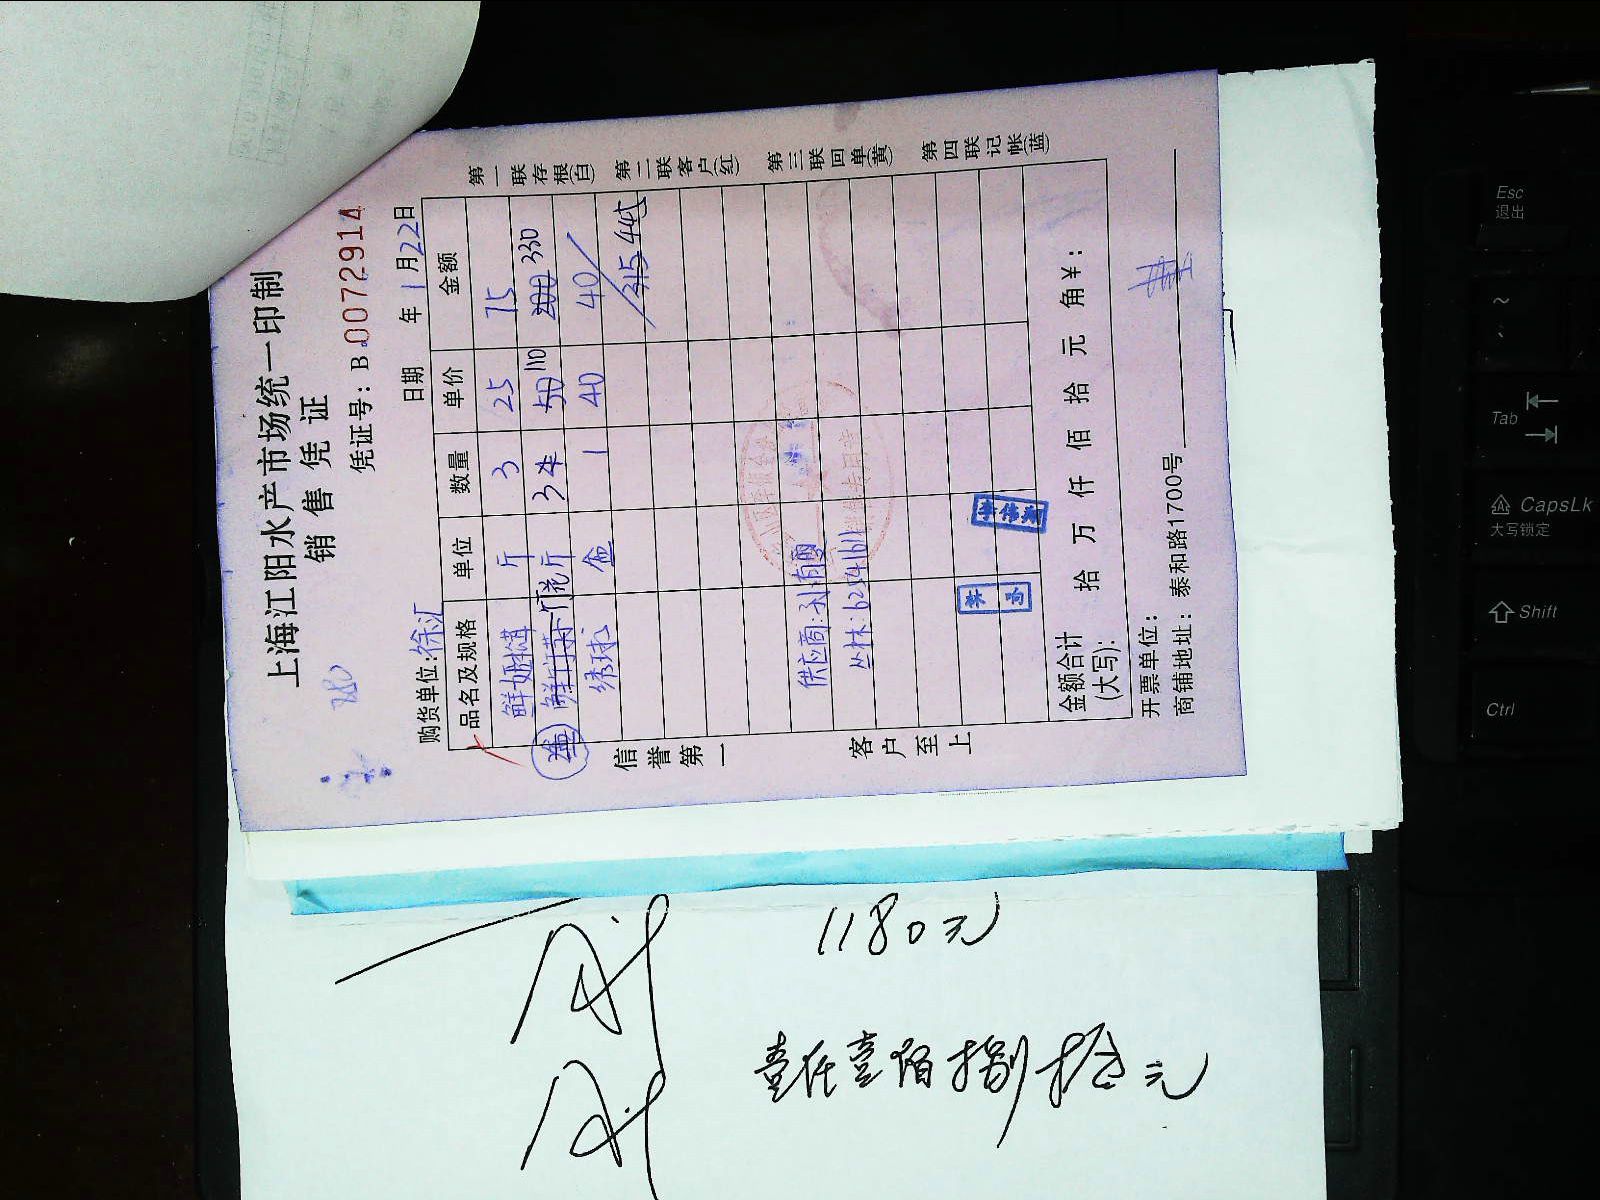 上海江阳水产市场统一印制
销售凭证
凭证号：B 0072914
购货单位：徐汇
日期 年 1 月 22 日
品名及规格 单位 数量 单价 金额
斤 3 25 75
斤 3 110 330
绣球 盒 1 40 40
315 445
供应商：
丛林：
李伟
金额合计(大写)： 拾 万 仟 佰 拾 元 角 ¥：
开票单位：
商铺地址： 泰和路1700号
信誉第一
客户至上
第一联存根(白)
第二联客户(红)
第三联回单(黄)
第四联记帐(蓝)
1180元
壹仟壹佰捌拾元
Esc
退出
~
Tab
CapsLk
大写锁定
Shift
Ctrl